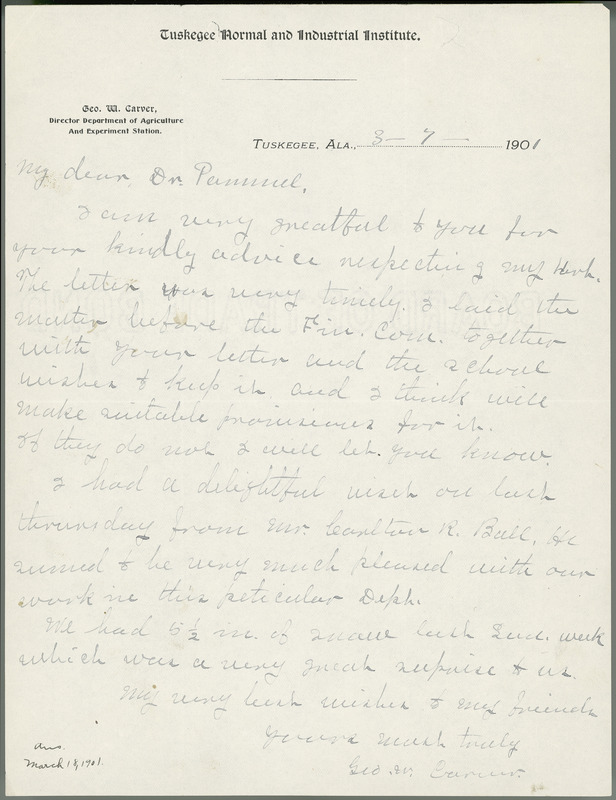 Tuskegee Normal and Industrial Institute.
Geo. W. Carver,
Director Department of Agriculture
And Experiment Station.
Tuskegee, Ala., 3-7- 1901
My dear, Dr. Pammel,
I am very greatful to you for
your kindly advice respecting my Herb.
The letter was very timely. I laid the
matter before the Fin. Com. together
with your letter and the school
wishes to keep it and I think will
make suitable provisions for it.
If they do not I will let you know.
I had a delightful visit on last
thrursday from Mr. Carlton R. Ball, He
seemed to be very much pleased with our
work in this peticular Dept.
We had 5½ in. of snow last Sun. week
which was a very great supise to us.
My very best wishes to my friends
Yours most truly
Geo. W. Carver.
Ans.
March 18, 1901.